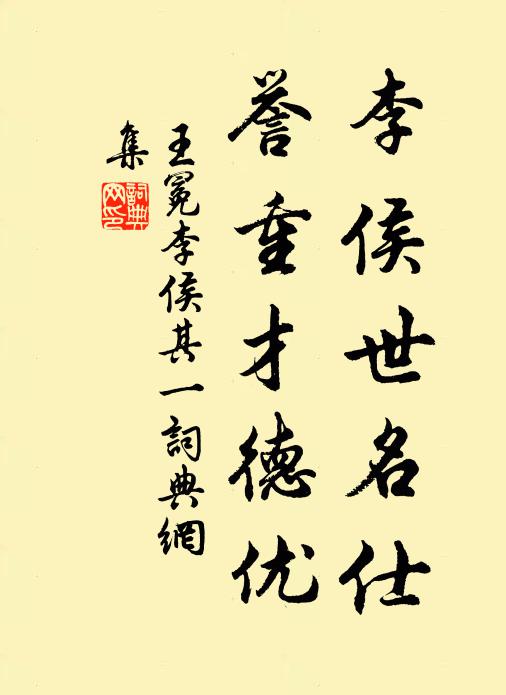 李侯世名仕
誉重才德优
王冕李侯其一詞典網
集
詞典網印